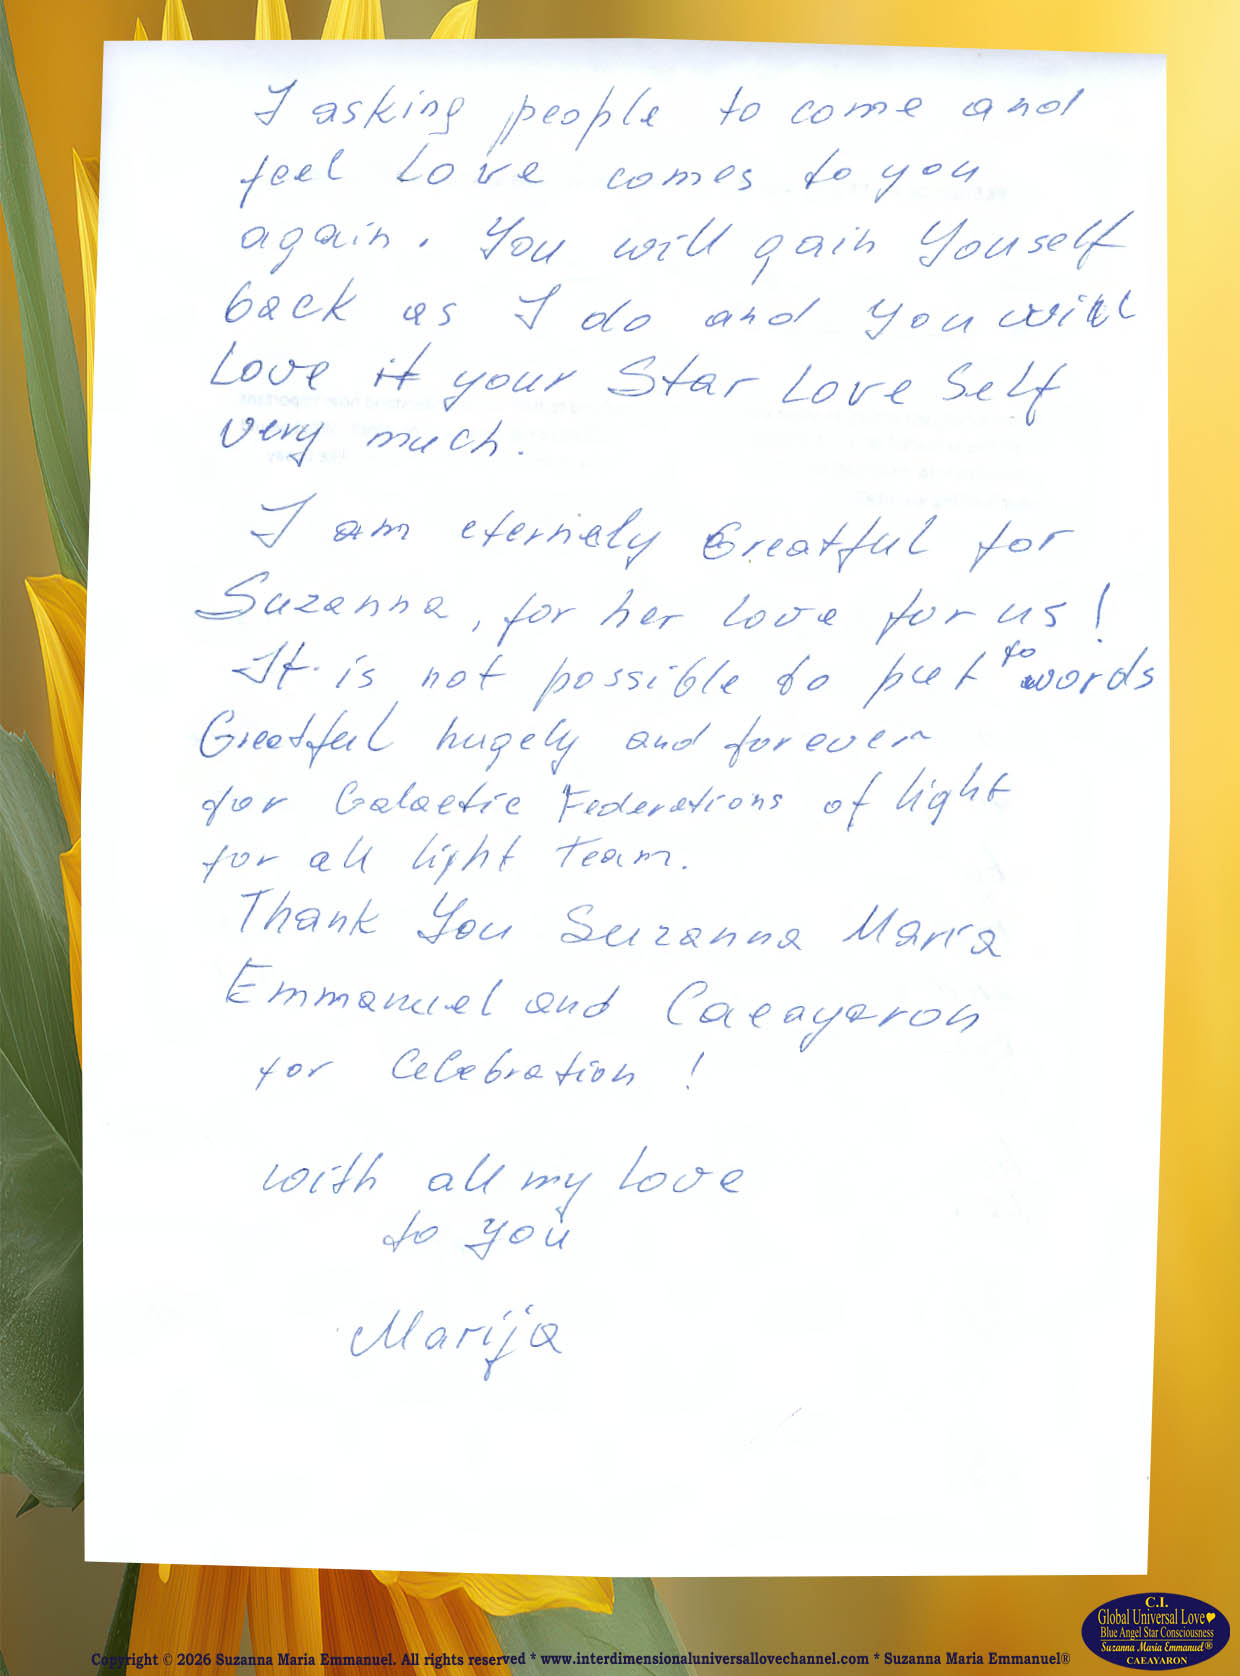 I asking people to come and
feel Love comes to you
again. You will gain Youself
back as I do and you will
Love it your Star Love Self
very much.
I am eternely Greatful for
Suzanna, for her love for us!
It is not possible to put to words
Greatful hugely and forever
for Galactic Federations of light
for all light Team.
Thank You Suzanna Maria
Emmanuel and Caeayaron
for Celebration!
with all my love
to you
Marija
C.I.
Global Universal Love
Blue Angel Star Consciousness
Suzanna Maria Emmanuel®
CAEAYARON
Copyright © 2026 Suzanna Maria Emmanuel. All rights reserved * www.interdimensionaluniversallovechannel.com * Suzanna Maria Emmanuel®